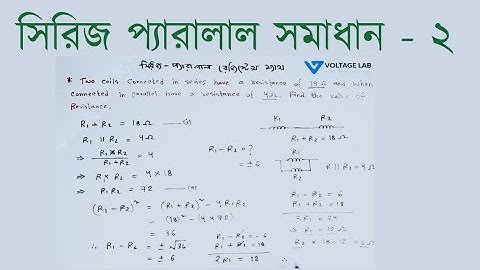 সিরিজ প্যারালাল সমাধান - ২
সিরিজ - প্যারালাল রেজিস্টেন্স ম্যাথ
VOLTAGE LAB
* Two coils connected in series have a resistance of 18Ω and when
connected in parallel have a resistance of 4Ω. Find the value of
Resistance.
R₁ + R₂ = 18Ω —— (i)
R₁ || R₂ = 4Ω
⇒ R₁ × R₂ / R₁ + R₂ = 4
⇒ R₁ × R₂ = 4 × 18
⇒ R₁R₂ = 72 —— (ii)
(R₁ - R₂)² = (R₁ + R₂)² - 4R₁R₂
= (18)² - (4 × 72)
= 36
∴ R₁ - R₂ = ± √36
= ± 6
R₁ - R₂ = ?
= ± 6
R₁ - R₂ = -6
R₁ + R₂ = 18
2R₁ = 12
R₁
R₂
R₁ + R₂ = 18Ω
R₁
R₂
R₁ || R₂ = 4Ω
R₁ - R₂ = 6
R₁ + R₂ = 18
2R₁ = 24
⇒ R₁ = 12Ω
R₂ = 18 - 12 = 6Ω
∴